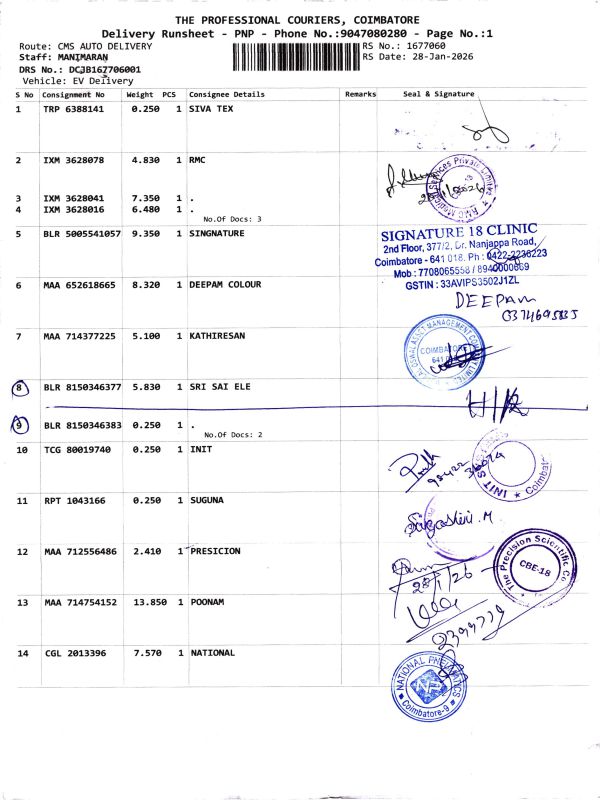 THE PROFESSIONAL COURIERS, COIMBATORE
Delivery Runsheet - PNP - Phone No.:9047080280 - Page No.:1
Route: CMS AUTO DELIVERY
RS No.: 1677060
Staff: MANIMARAN
RS Date: 28-Jan-2026
DRS No.: DCJB167706001
Vehicle: EV Delivery
S No Consignment No Weight PCS Consignee Details Remarks Seal & Signature
1 TRP 6388141 0.250 1 SIVA TEX
2 IXM 3628078 4.830 1 RMC
3 IXM 3628041 7.350 1 .
4 IXM 3628016 6.480 1 .
No.Of Docs: 3
5 BLR 5005541057 9.350 1 SINGNATURE
SIGNATURE 18 CLINIC
2nd Floor, 377/2, Dr. Nanjappa Road,
Coimbatore - 641 018. Ph : 0422-2236223
Mob : 7708065558 / 8940000669
GSTIN : 33AVIPS3502J1ZL
6 MAA 652618665 8.320 1 DEEPAM COLOUR
DEEPAM
7 MAA 714377225 5.100 1 KATHIRESAN
8 BLR 8150346377 5.830 1 SRI SAI ELE
9 BLR 8150346383 0.250 1 .
No.Of Docs: 2
10 TCG 80019740 0.250 1 INIT
INIT
11 RPT 1043166 0.250 1 SUGUNA
12 MAA 712556486 2.410 1 PRESICION
28/1/26
The Precision Scientific Co
CBE-18
13 MAA 714754152 13.850 1 POONAM
14 CGL 2013396 7.570 1 NATIONAL
NATIONAL PNEUMATICS
Coimbatore-9